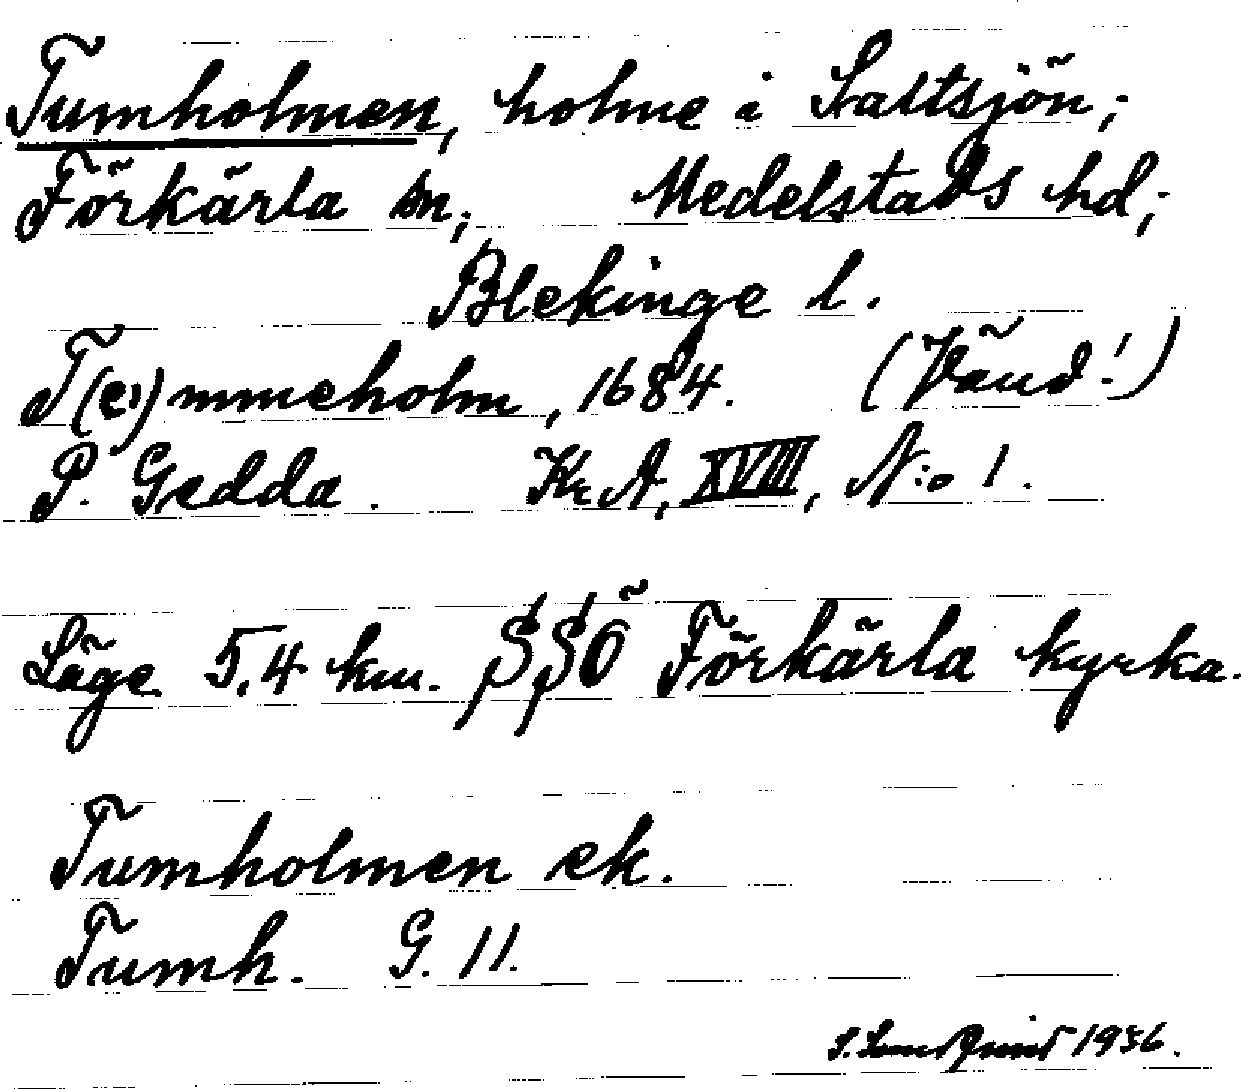 Tumholmen, holme i Saltsjön;
Förkärla sn; Medelstads hd;
Blekinge l.
T(e)mmeholm, 1684. (Vänd!)
P. Gedda. Kr. A, XVIII, N:o 1.
Läge 5,4 km. SSÖ Förkärla kyrka.
Tumholmen ek.
Tumh. G. 11.
1936.